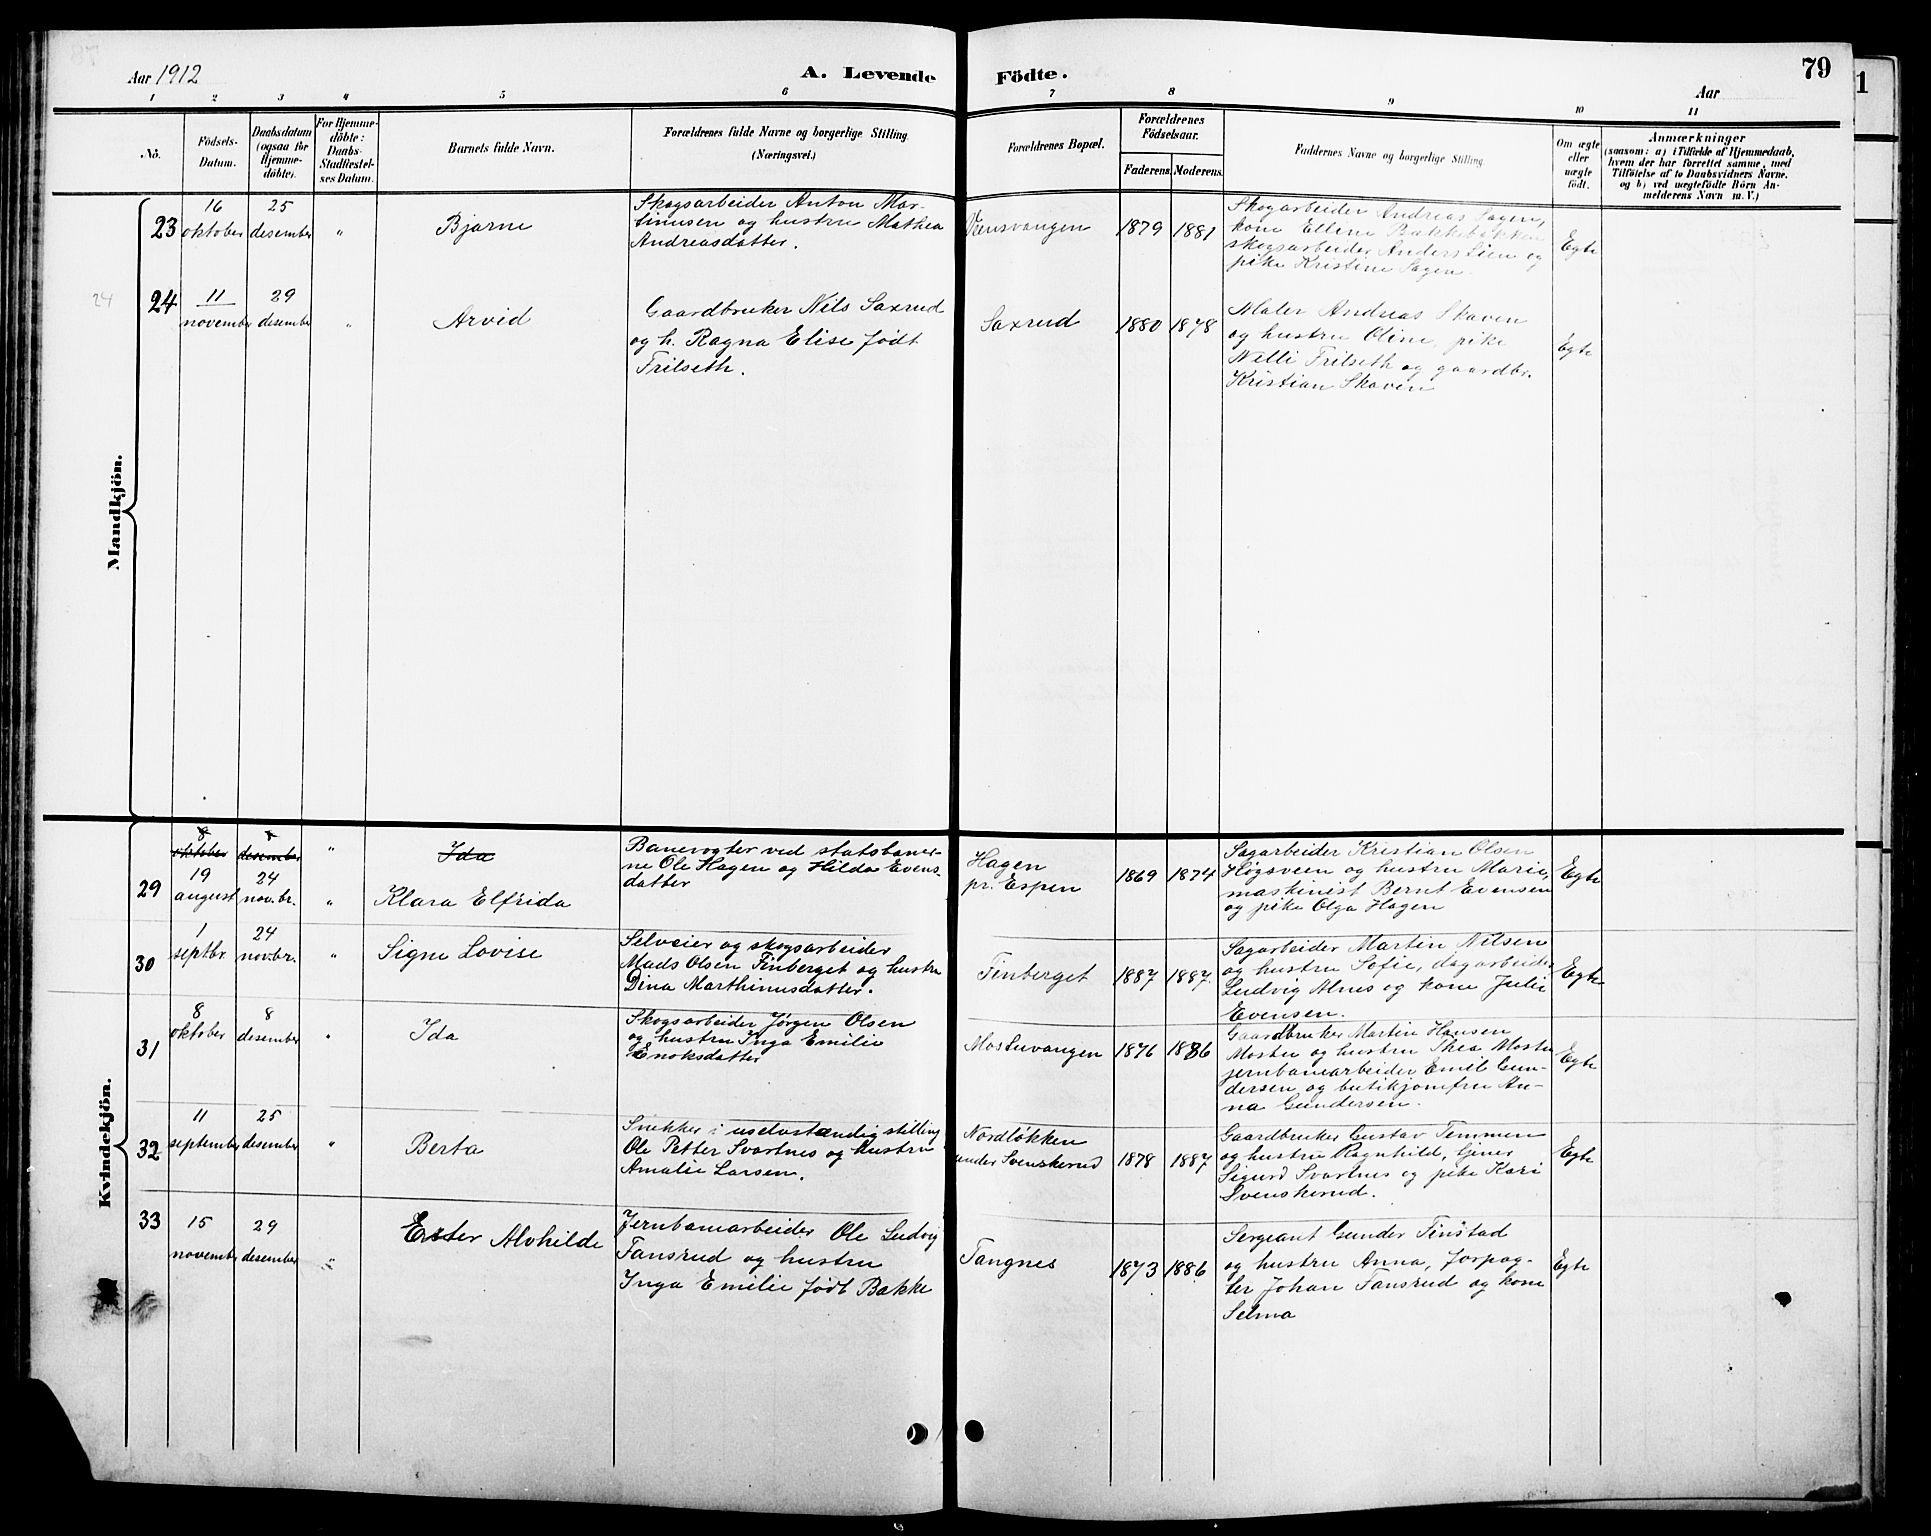 79
Aar 1912
A. Levende
Födte.
Aar
1 2 3 4 5 6 7 8 9 10 11
No.
Födsels-
Datum.
Daabsdatum
(ogsaa for
Hjemme-
döbte).
For Hjemme-
döbte:
Daabs-
Stadfæstel-
ses Datum.
Barnets fulde Navn.
Forældrenes fulde Navne og borgerlige Stilling
(Næringsvei.)
Forældrenes Bopæl.
Forældrenes
Födselsaar.
Faderens.
Moderens.
Faddernes Navne og borgerlige Stilling.
Om ægte
eller
uægte
født.
Anmærkninger
(saasom: a) i Tilfælde af Hjemmedaab,
hvem der har forrettet samme, med
Tilföielse af to Daabsvidners Navne,
og b) ved uægtefödte Börn An-
melderens Navn m. V.)
Mandkjön.
23
16
oktober
25
desember
"
Bjarne
Skogsarbeider Anton Mar-
tinusen og hustru Mathea
Andreasdatter.
1879
1881
Skogarbeider Andreas Sagen,
kone Elline Bakkebakken
skogsarbeider Anders Lien og
pike Kristine Sagen.
Egte
24
24
11
november
29
desember
"
Arvid
Gaardbruker Nils Saxrud
og h. Ragna Elise født
Frilseth.
Saxrud
1880
1878
Maler Andreas Skaven
og hustru Oline, pike
Nelli Frilseth og gaardbr.
Kristian Skaven
Egte
Kvindekjön.
8
oktober
desember
"
Ida
29
19
august
24
nov.br.
"
Klara Elfrida
Banevogter ved statsbaner-
ne Ole Hagen og Hilda Evens-
datter
Hagen
pr. Espen
1869
1874
Sagarbeider Kristian Olsen
Høgsveen og hustru Marie,
maskinist Bernt Evensen
og pike Olga Hagen
Egte
30
1
septbr
24
nov.br.
"
Signe Lovise
Selveier og skogsarbeider
Mads Olsen Finberget og hustru
Dina Marthinusdatter.
Finberget
1887
1887.
Sagarbeider Martin Nilsen
og hustru Sofie, dagarbeider
Ludvig Alnes og kone Julie
Evensen.
Egte
31
8
oktober
8
desember
"
Ida
Skogsarbeider Jørgen Olsen
og hustru Inga Emilie
Enoksdatter
Mostuvangen
1876
1886
Gaardbruker Martin Hansen
Mostu og hustru Thea Mostu
jernbanearbeider Emil Gun-
dersen og butikjomfru An-
na Gundersen.
Egte
32
11
september
25
desember
"
Berta
Snekker i uselvstændig stilling
Ole Petter Svartnes og hustru
Amalie Larsen.
Nordløkken
under Svenskerud
1878
1887
Gaardbruker Gustav Temmen
og hustru Ragnhild,
Sigurd Svartnes og pike Kari
Svenskerud.
Egte
33
15
november
29
desember
"
Ester Alvhilde
Jernbanearbeider Ole Ludvig
Tansrud og hustru
Inga Emilie født Bakke
Tangnes
1873
1886
Sergeant Gunder Finstad
og hustru Anna, forpag-
ter Johan Tansrud og kone
Selma
Egte
1